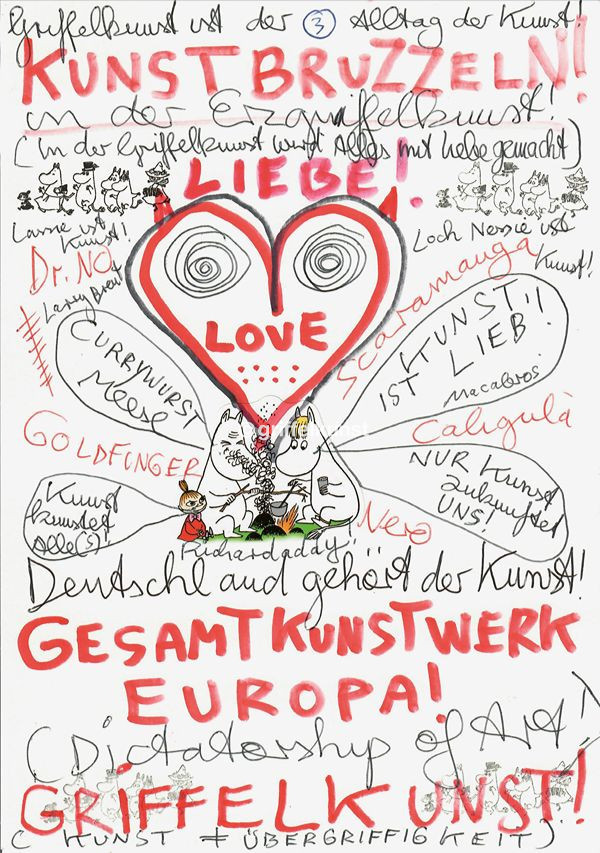 Griffelkunst ist der ③ Alltag der Kunst!
KUNST BRUZZELN!
in der Erzgriffelkunst!
(In der Griffelkunst wird Alles mit Liebe gemacht)
LIEBE!
Lassie ist
Kunst!
Loch Nessie ist
Kunst!
Dr. NO
Larry Brent
Scaramanga
LOVE
CURRYWURST
Meese
KUNST
IST LIEB!!
Macabros
GOLDFINGER
Caligulà
griffelkunst
Kunst
kunstet
Alle(s)!
NUR Kunst
zukunftet
UNS!
Nero
Richardaddy!
Deutschland gehört der Kunst!
GESAMTKUNSTWERK
EUROPA!
(Dictatorship of Art!)
GRIFFELKUNST!
(KUNST ≠ ÜBERGRIFFIGKEIT)